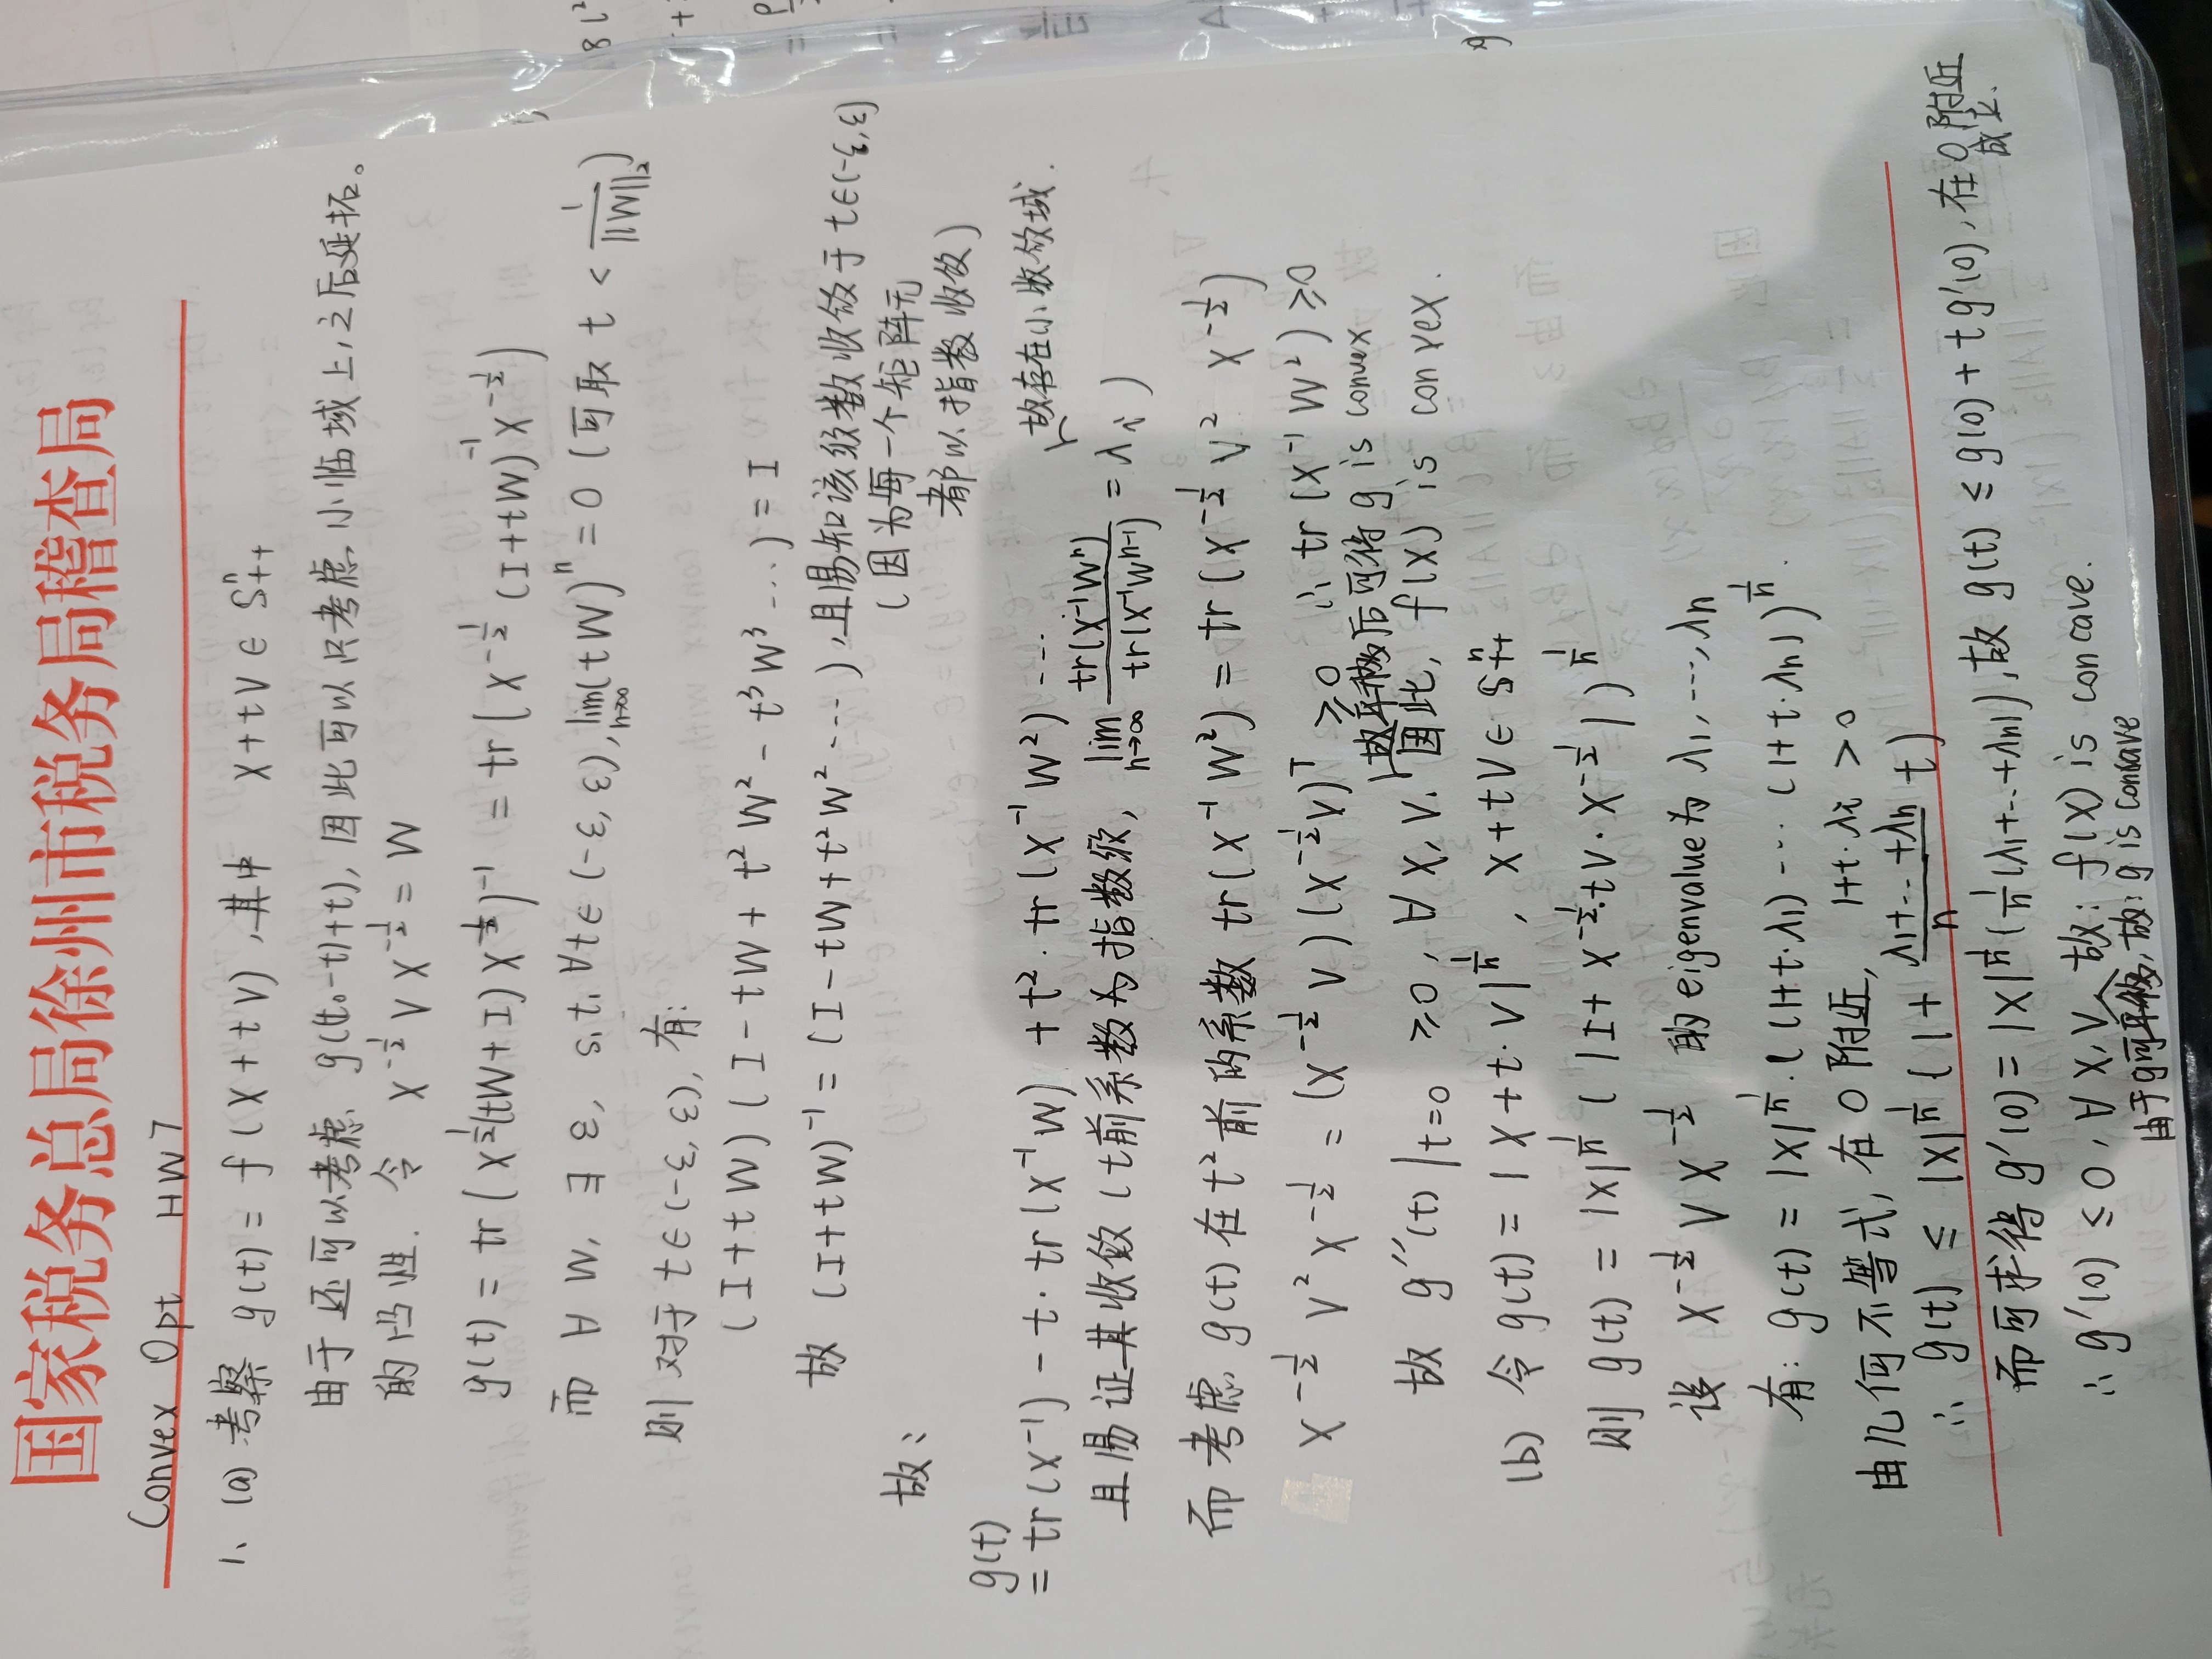 国家税务总局徐州市税务局稽查局
Convex Opt HW7
1、(a) 考察 g(t) = f(X+tV), 其中 X+tV ∈ S^n_{++}
由于还可以考虑 g((t₀-t)+t), 因此可以只考虑小临域上,之后延拓。
的凸性. 令 X^{-1/2} V X^{-1/2} = W
g(t) = tr(X^{1/2}(tW+I)X^{1/2})^{-1} = tr(X^{-1/2}(I+tW)^{-1}X^{-1/2})
而 ∀W, ∃ε, s.t. ∀t∈(-ε,ε), lim_{n→∞}(tW)^n = 0 (可取 t < 1/||W||₂)
则对于 t∈(-ε,ε), 有:
(I+tW)(I-tW+t²W²-t³W³...) = I
故 (I+tW)^{-1} = (I-tW+t²W²...), 且易知该级数收敛于 t∈(-ε,ε)
(因为每一个矩阵元
都以指数收敛)
故:
g(t)
= tr(X^{-1}) - t·tr(X^{-1}W) + t²·tr(X^{-1}W²)...
故存在小收敛域.
且易证其收敛 (t前系数为指数级, lim_{n→∞} tr(X^{-1}W^n)/tr(X^{-1}W^{n-1}) = λ_i)
而考虑 g(t) 在 t² 前的系数 tr(X^{-1}W²) = tr(X^{-1/2} V² X^{-1/2})
X^{-1/2} V² X^{-1/2} = (X^{-1/2}V)(X^{-1/2}V)^T ≥0 ∴ tr(X^{-1}W²) ≥0
故平移后可得 g is convex
故 g''(t)|_{t=0} ≥0, ∀X,V. 因此, f(X) is convex.
(b) 令 g(t) = |X+t·V|^{1/n}, X+tV∈S^n_{++}
则 g(t) = |X|^{1/n} (|I+X^{-1/2}·tV·X^{-1/2}|)^{1/n}
设 X^{-1/2} V X^{-1/2} 的 eigenvalue 为 λ₁,...,λn
有: g(t) = |X|^{1/n}·((1+t·λ₁)...(1+t·λn))^{1/n}.
由几何不等式, 在 0 附近, 1+t·λi > 0
∴ g(t) ≤ |X|^{1/n}(1 + (λ₁+...+λn)/n t)
而可求得 g'(0) = |X|^{1/n}(1/n(λ₁+...+λn)), 故 g(t) ≤ g(0)+tg'(0), 在0附近
成立.
∴ g'(0) ≤ 0, ∀X,V 故: f(X) is concave.
由于g可平移, 故: g is concave